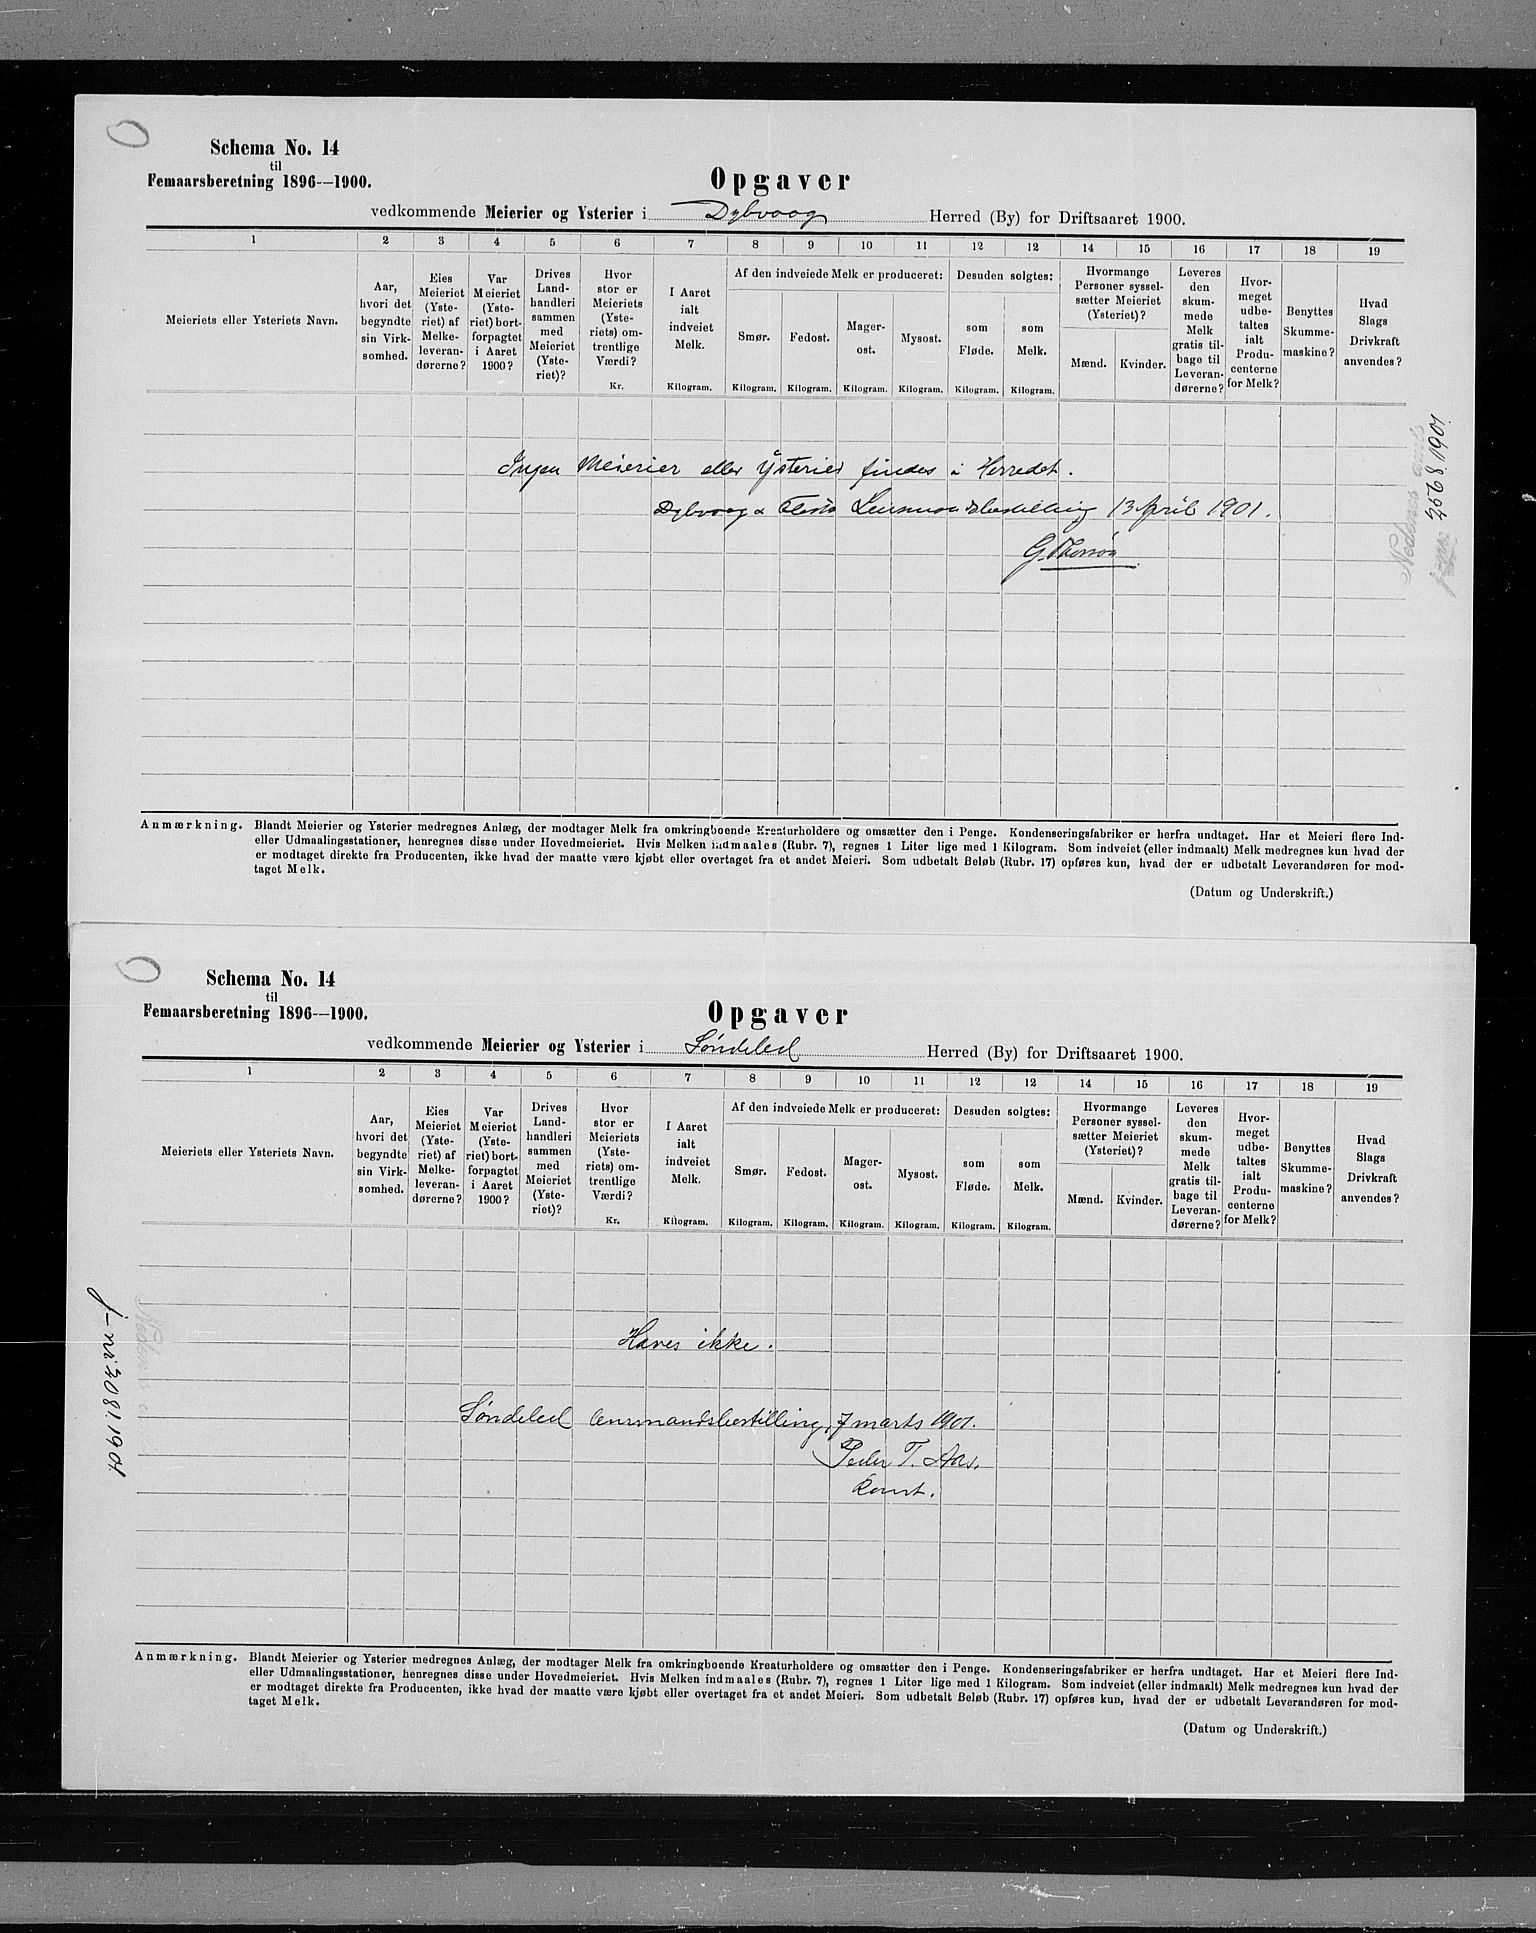 Schema No. 14
til
Femaarsberetning 1896—1900.
Opgaver
vedkommende Meierier og Ysterier i Dybvaag Herred (By) for Driftsaaret 1900.
1 2 3 4 5 6 7 8 9 10 11 12 12 14 15 16 17 18 19
Meieriets eller Ysteriets Navn.
Aar, hvori det begyndte sin Virk-somhed.
Eies Meieriet (Yste-riet) af Melke-leveran-dørerne?
Var Meieriet (Yste-riet) bort-forpagtet i Aaret 1900?
Drives Land-handleri sammen med Meieriet (Yste-riet)?
Hvor stor er Meieriets (Yste-riets) om-trentlige Værdi? Kr.
I Aaret ialt indveiet Melk. Kilogram.
Af den indveiede Melk er produceret:
Smør. Kilogram.
Fedost. Kilogram.
Mager-ost. Kilogram.
Mysost. Kilogram.
Desuden solgtes:
som Fløde. Kilogram.
som Melk. Kilogram.
Hvormange Personer syssel-sætter Meieriet (Ysteriet)?
Mænd.
Kvinder.
Leveres den skum-mede Melk gratis til-bage til Leveran-dørerne?
Hvor-meget udbe-taltes ialt Produ-centerne for Melk?
Benyttes Skumme-maskine?
Hvad Slags Drivkraft anvendes?
Ingen Meierier eller Ysterier findes i Herredet.
Dybvaag & Lensmandsbestilling 13 April 1901.
Nedenes amts
2568.1901
Anmærkning. Blandt Meierier og Ysterier medregnes Anlæg, der modtager Melk fra omkringboende Kreaturholdere og omsætter den i Penge. Kondenseringsfabriker er herfra undtaget. Har et Meieri flere Ind-
eller Udmaalingsstationer, henregnes disse under Hovedmeieriet. Hvis Melken indmaales (Rubr. 7), regnes 1 Liter lige med 1 Kilogram. Som indveiet (eller indmaalt) Melk medregnes kun hvad der
er modtaget direkte fra Producenten, ikke hvad der maatte være kjøbt eller overtaget fra et andet Meieri. Som udbetalt Beløb (Rubr. 17) opføres kun, hvad der er udbetalt Leverandøren for mod-
taget Melk.
(Datum og Underskrift.)
Schema No. 14
til
Femaarsberetning 1896—1900.
Opgaver
vedkommende Meierier og Ysterier i Søndeled Herred (By) for Driftsaaret 1900.
1 2 3 4 5 6 7 8 9 10 11 12 12 14 15 16 17 18 19
Meieriets eller Ysteriets Navn.
Aar, hvori det begyndte sin Virk-somhed.
Eies Meieriet (Yste-riet) af Melke-leveran-dørerne?
Var Meieriet (Yste-riet) bort-forpagtet i Aaret 1900?
Drives Land-handleri sammen med Meieriet (Yste-riet)?
Hvor stor er Meieriets (Yste-riets) om-trentlige Værdi? Kr.
I Aaret ialt indveiet Melk. Kilogram.
Af den indveiede Melk er produceret:
Smør. Kilogram.
Fedost. Kilogram.
Mager-ost. Kilogram.
Mysost. Kilogram.
Desuden solgtes:
som Fløde. Kilogram.
som Melk. Kilogram.
Hvormange Personer syssel-sætter Meieriet (Ysteriet)?
Mænd.
Kvinder.
Leveres den skum-mede Melk gratis til-bage til Leveran-dørerne?
Hvor-meget udbe-taltes ialt Produ-centerne for Melk?
Benyttes Skumme-maskine?
Hvad Slags Drivkraft anvendes?
Haves ikke.
Søndeled lensmandsbestilling, 7 marts 1901.
Peder T. Aas.
Konst.
j-nr 2081.1901
Anmærkning. Blandt Meierier og Ysterier medregnes Anlæg, der modtager Melk fra omkringboende Kreaturholdere og omsætter den i Penge. Kondenseringsfabriker er herfra undtaget. Har et Meieri flere Ind-
eller Udmaalingsstationer, henregnes disse under Hovedmeieriet. Hvis Melken indmaales (Rubr. 7), regnes 1 Liter lige med 1 Kilogram. Som indveiet (eller indmaalt) Melk medregnes kun hvad der
er modtaget direkte fra Producenten, ikke hvad der maatte være kjøbt eller overtaget fra et andet Meieri. Som udbetalt Beløb (Rubr. 17) opføres kun, hvad der er udbetalt Leverandøren for mod-
taget Melk.
(Datum og Underskrift.)